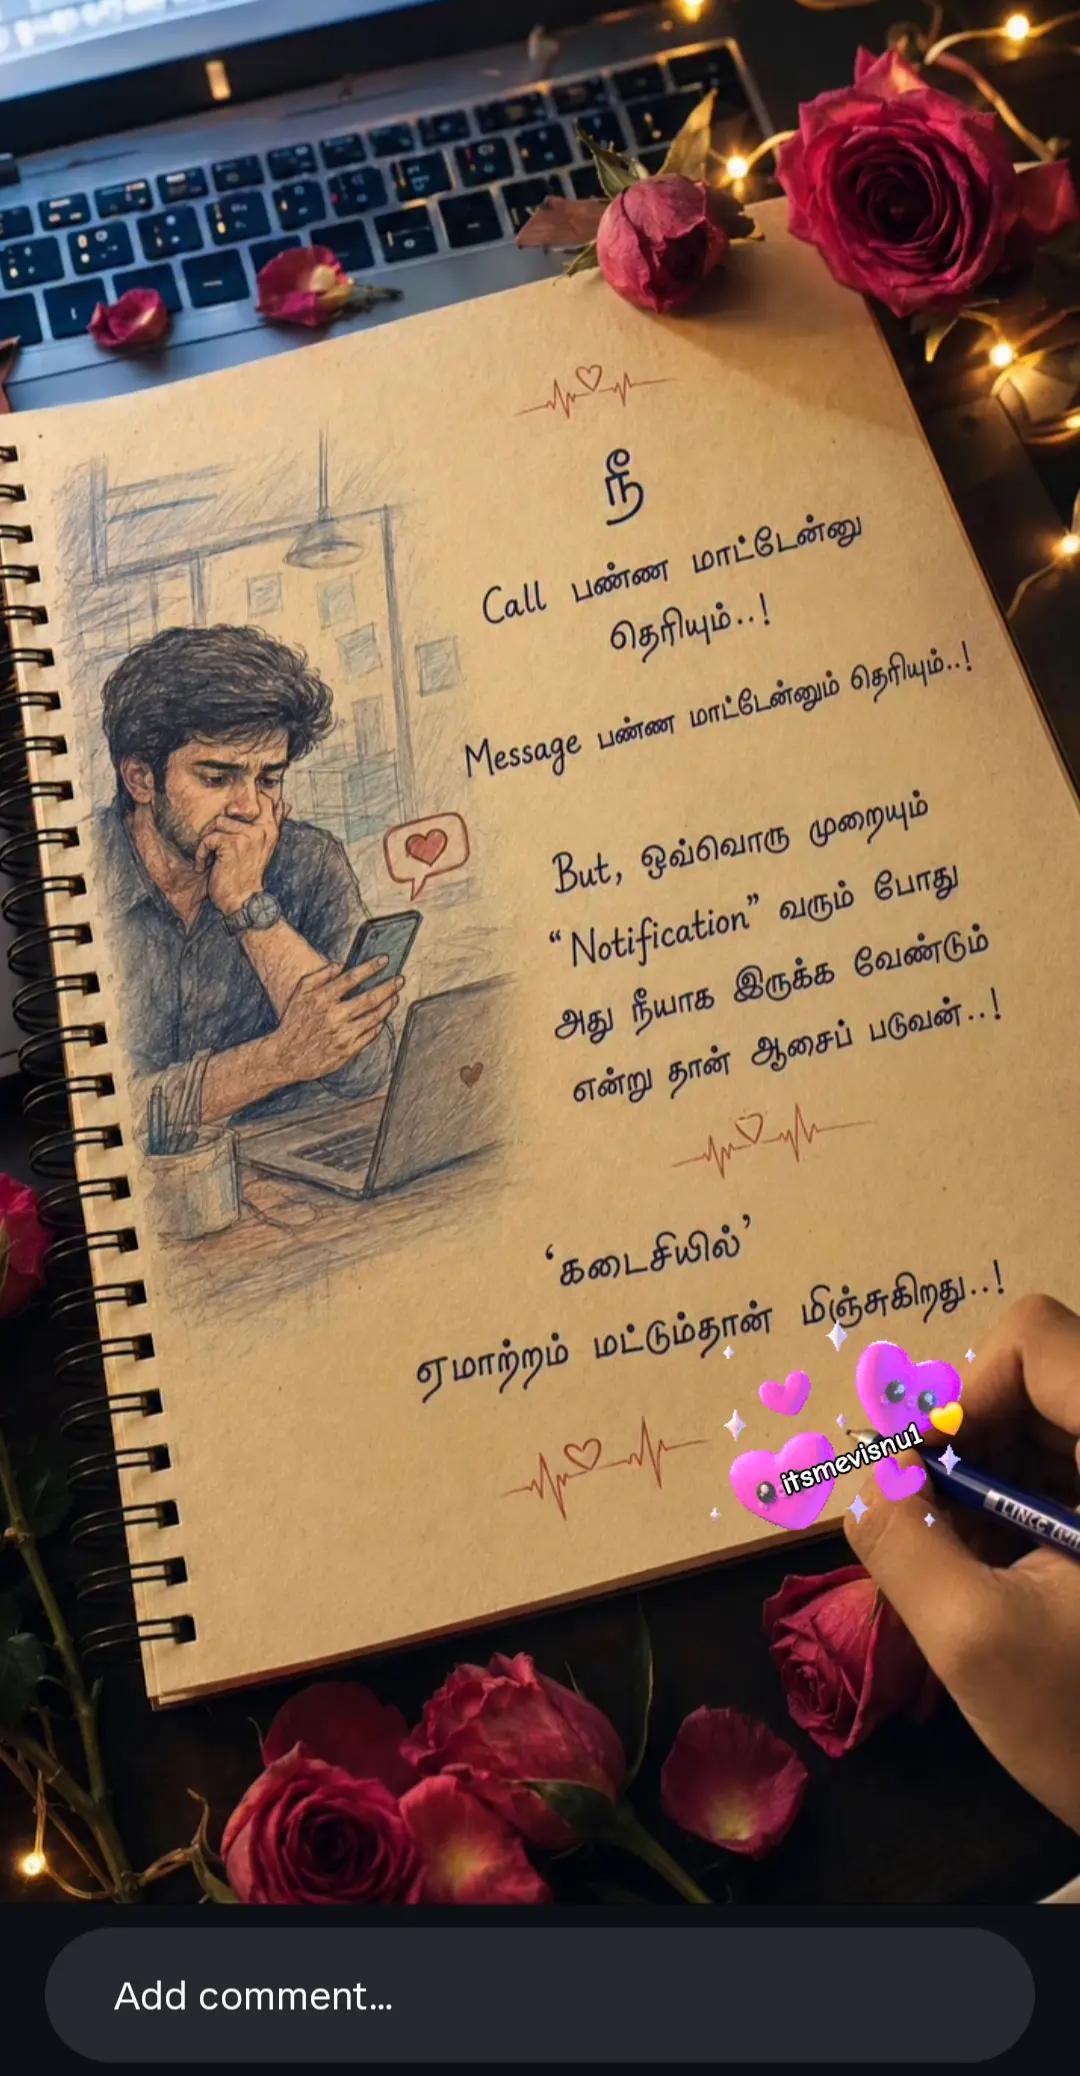 நீ
Call பண்ண மாட்டேன்னு
தெரியும்..!
Message பண்ண மாட்டேன்னும் தெரியும்..!
But, ஒவ்வொரு முறையும்
“Notification” வரும் போது
அது நீயாக இருக்க வேண்டும்
என்று தான் ஆசைப் படுவன்..!
‘கடைசியில்’
ஏமாற்றம் மட்டும்தான் மிஞ்சுகிறது..!
itsmevisnu1
Add comment...